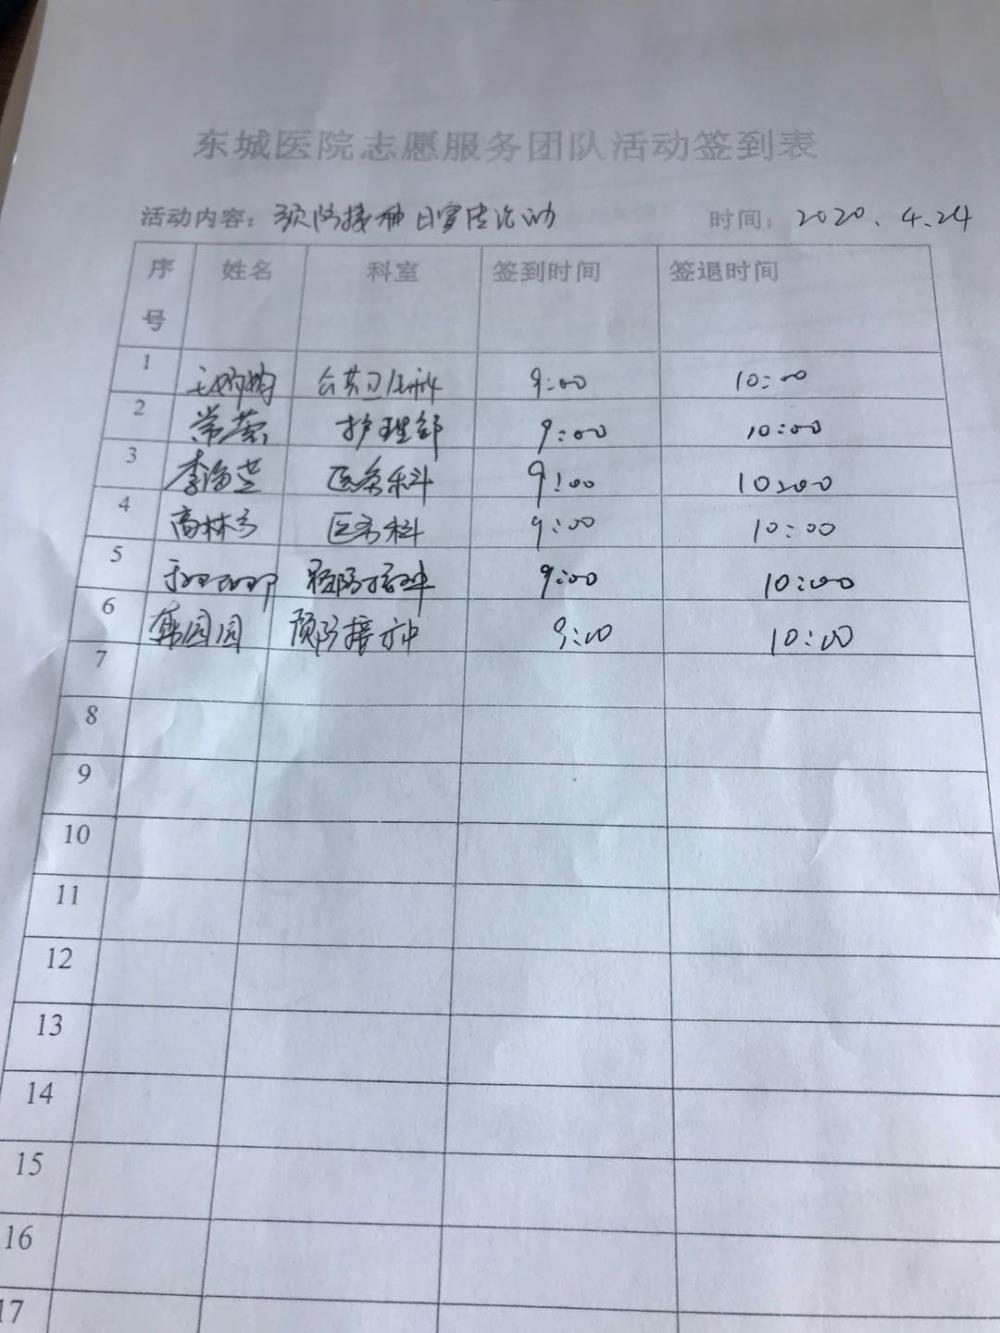 东城医院志愿服务团队活动签到表
活动内容：预防接种日宣传活动 时间：2020.4.24
序号 姓名 科室 签到时间 签退时间
1 公共卫生科 9:00 10:00
2 常荣 护理部 9:00 10:00
3 医务科 9:00 10:00
4 医务科 9:00 10:00
5 预防接种 9:00 10:00
6 韩园园 预防接种 9:00 10:00
7
8
9
10
11
12
13
14
15
16
17